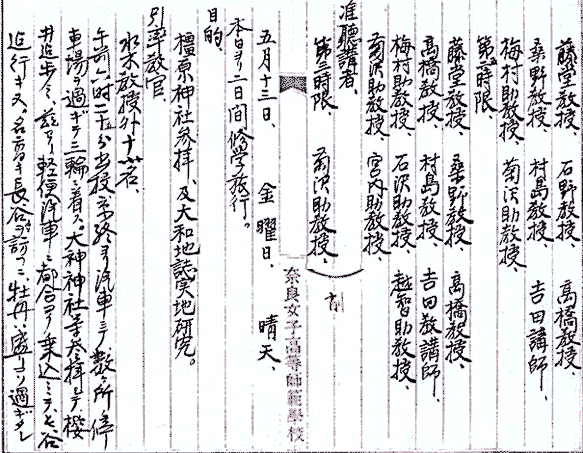 藤堂教授、 石野教授、 高橋教授、
桑野教授、 村島教授、 吉田講師、
梅村助教授、 菊沢助教授、
第二時限、
藤堂教授、 桑野教授、 高橋教授、
高橋教授、 村島教授、 吉田教講師、
梅村助教授、 石沢助教授、 越智助教授、
菊沢助教授、 宮内助教授、
准聴講者、
第三時限、 菊沢助教授、
奈良女子高等師範學校
五月十三日、 金曜日、 晴天、
本日ヨリ二日間修学旅行。
目的、
橿原神社参拝、及大和地誌実地研究。
引率教官、
水木教授外十八名、
午前六時二五分出校、京終ヨリ汽車ニテ数ヶ所ノ停
車場ヲ過ギテ三輪ニ着ス。大神神社等参拝シテ桜
井迄歩ミ、茲ヨリ軽便汽車ニ都合ヨク乗込ミテ長谷
迄行キヌ。名高キ長谷ヲ訪フニ、牡丹ハ盛ヨリ過ギタレ